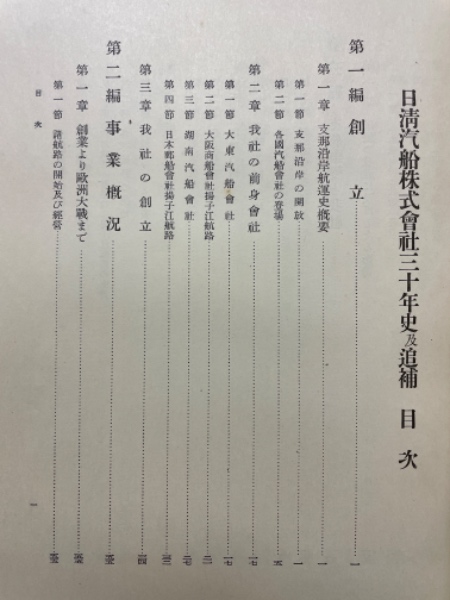 日淸汽船株式會社三十年史及追補 目次
第一編 創立 一
第一章 支那沿岸航運史槪要 一
第一節 支那沿岸の開放 一
第二節 各國汽船會社の登場 五
第二章 我社の前身會社 一七
第一節 大東汽船會社 一七
第二節 大阪商船會社揚子江航路
第三節 湖南汽船會社
第四節 日本郵船會社揚子江航路
第三章 我社の創立
第二編 事業槪況
第一章 創業より歐洲大戰まで
第一節 諸航路の開始及び經營
目次
一